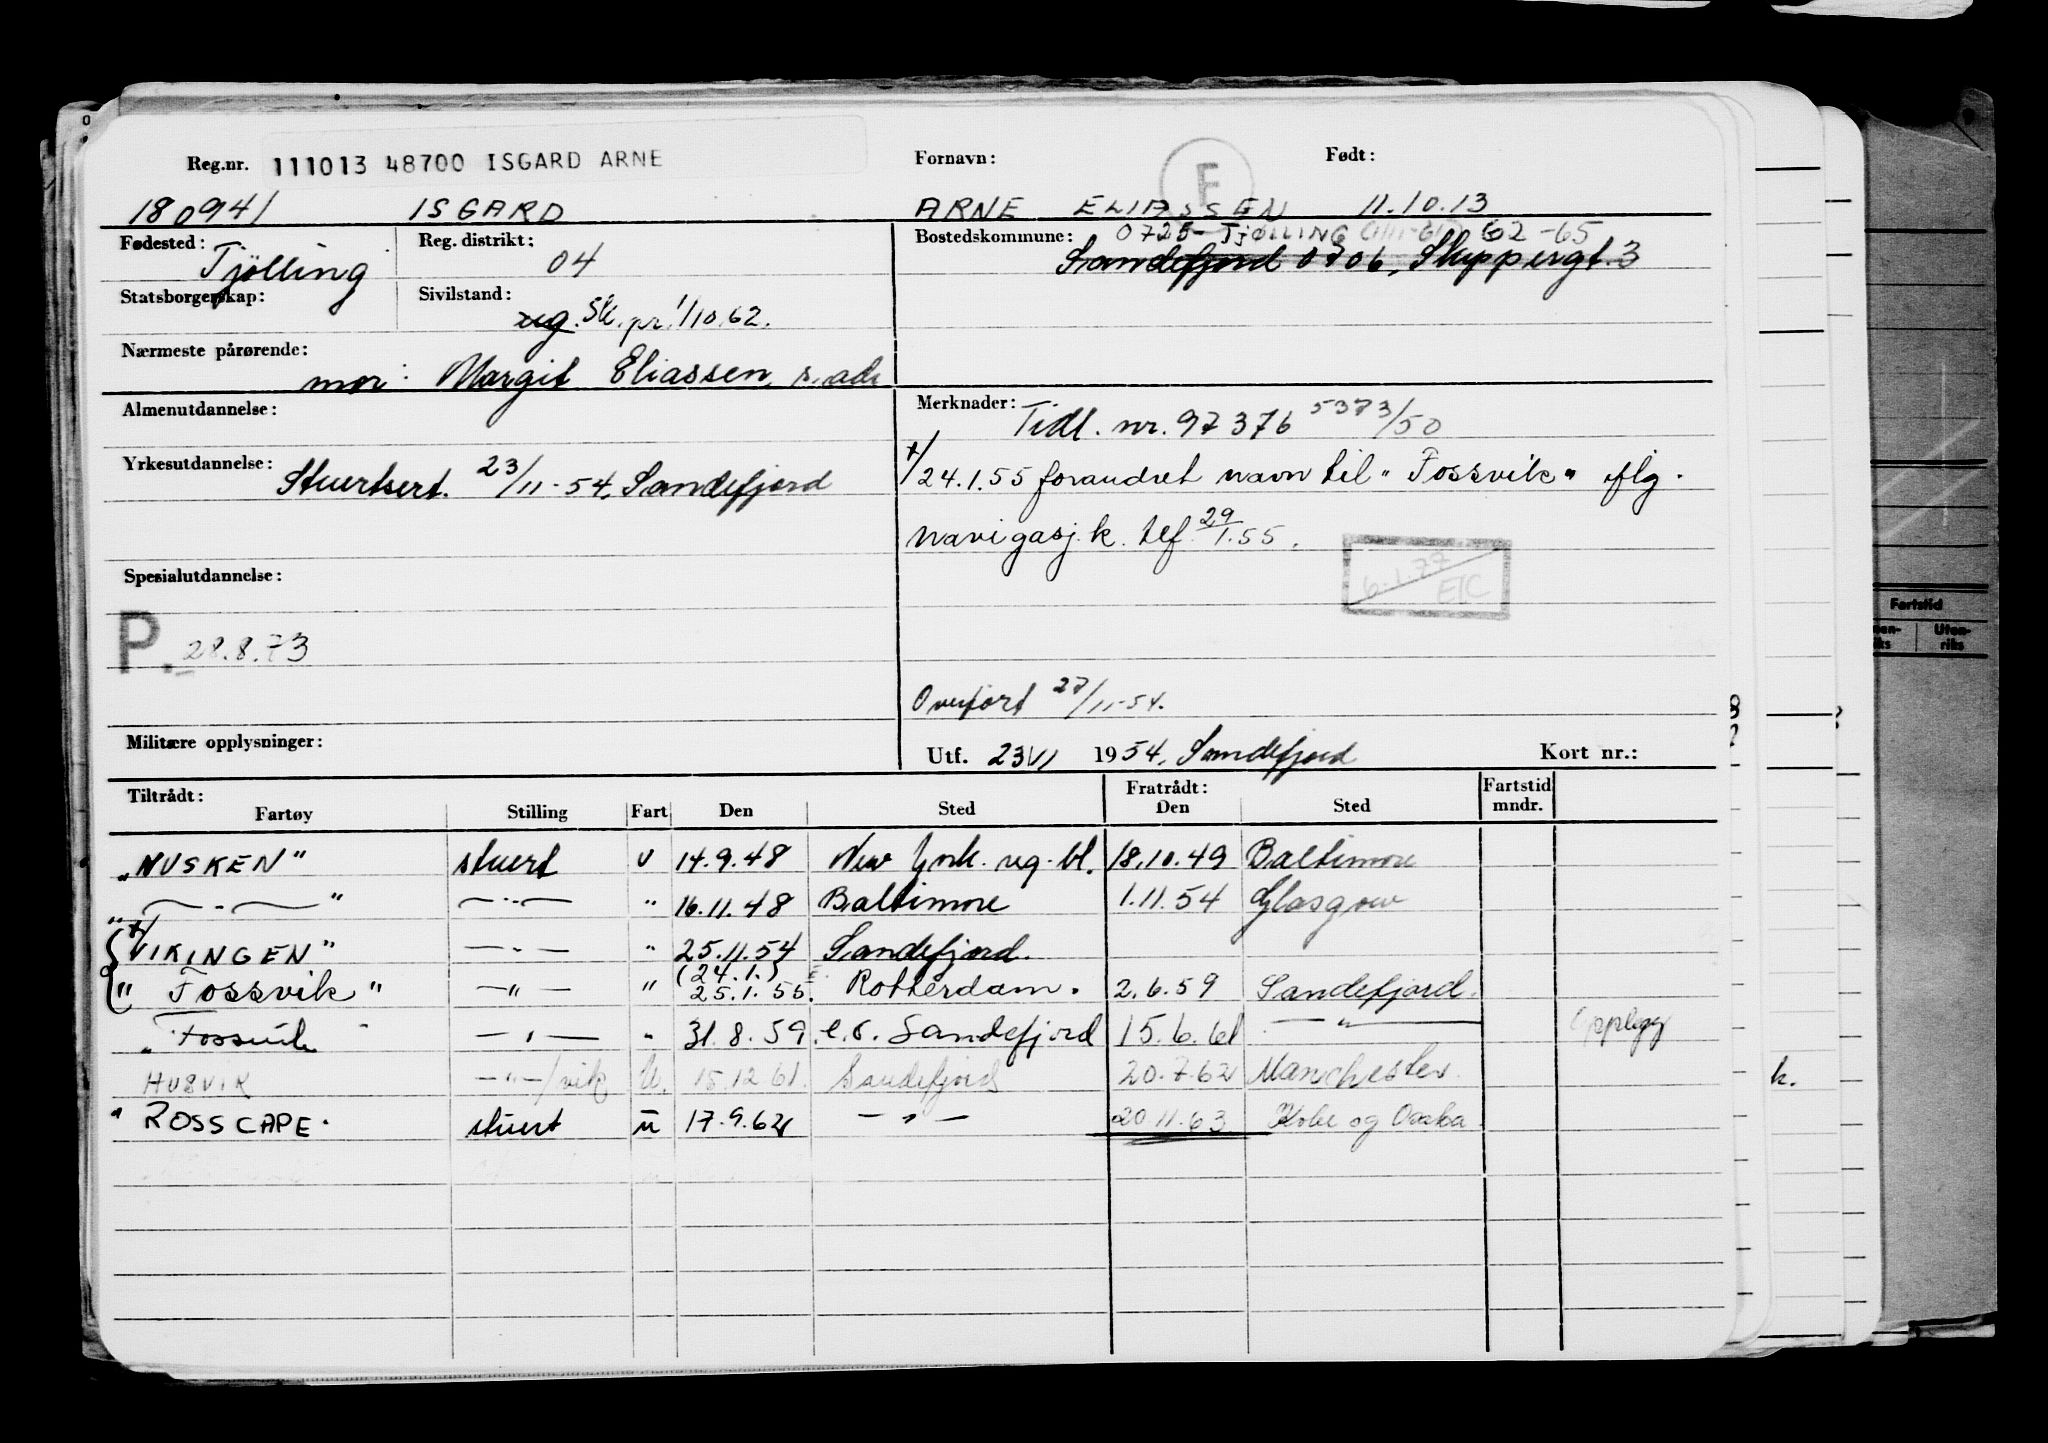 Reg.nr. 111013 48700 ISGARD ARNE Fornavn: F Født:
180941 ISGARD ARNE ELIASSEN 11.10.13
Fødested: Tjölling Reg. distrikt: 04 Bostedskommune: 0725 - TJØLLING 62-65
Sandefjord 0706, Skippergt. 3
Statsborgerskap: Sivilstand: ug. Sk. pr. 1/10.62.
Nærmeste pårørende: mor: Margit Eliassen, s. adr
Almenutdannelse: Merknader: Tidl. nr. 97376 5373/50
Yrkesutdannelse: Stuertsert. 23/11-54, Sandefjord
+/ 24.1.55 forandret navn til "Fossvik" iflg.
navigasj.k. tlf. 29/1.55.
6.1.77 EIC
Spesialutdannelse:
P. 28.8.73
Overført 27/11-54.
Militære opplysninger: Utf. 23/11 1954, Sandefjord Kort nr.:
Tiltrådt: Fratrådt: Fartstid
Fartøy Stilling Fart Den Sted Den Sted mndr.
"NUSKEN" stuert u 14.9.48 New York. reg. bl. 18.10.49 Baltimore
— " — " — " — " 16.11.48 Baltimore 1.11.54 Glasgow
+/ "VIKINGEN" — " — " 25.11.54 Sandefjord.
" Fossvik " — " — " (24.1.) 25.1.55. Rotterdam. 2.6.59 Sandefjord.
" Fossvik " — " — " 31.8.59. e.o. Sandefjord 15.6.61 — " — Opplegg
HUSVIK — " —/vik U. 15.12.61. Sandefjord 20.7.62 Manchester.
" ROSS CAPE. stuert u 17.9.62 — " — 20.11.63 Kobe og Osaka
Fartstid
Uten-
riks
k.